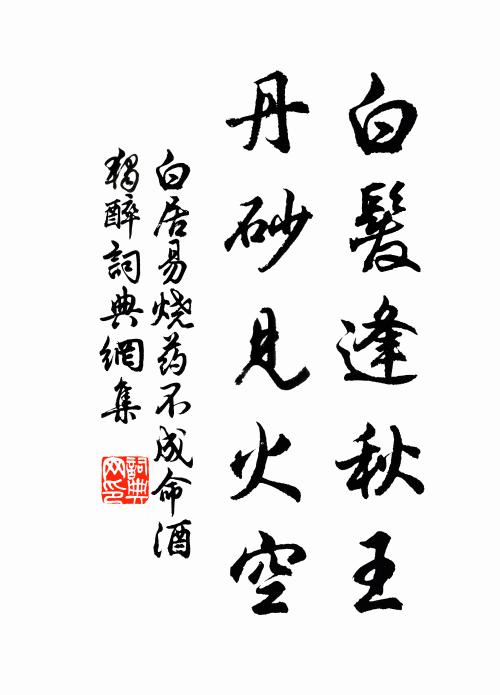 白髮逢秋王
丹砂見火空
白居易烧药不成命酒
獨醉詞典網集
詞典網印